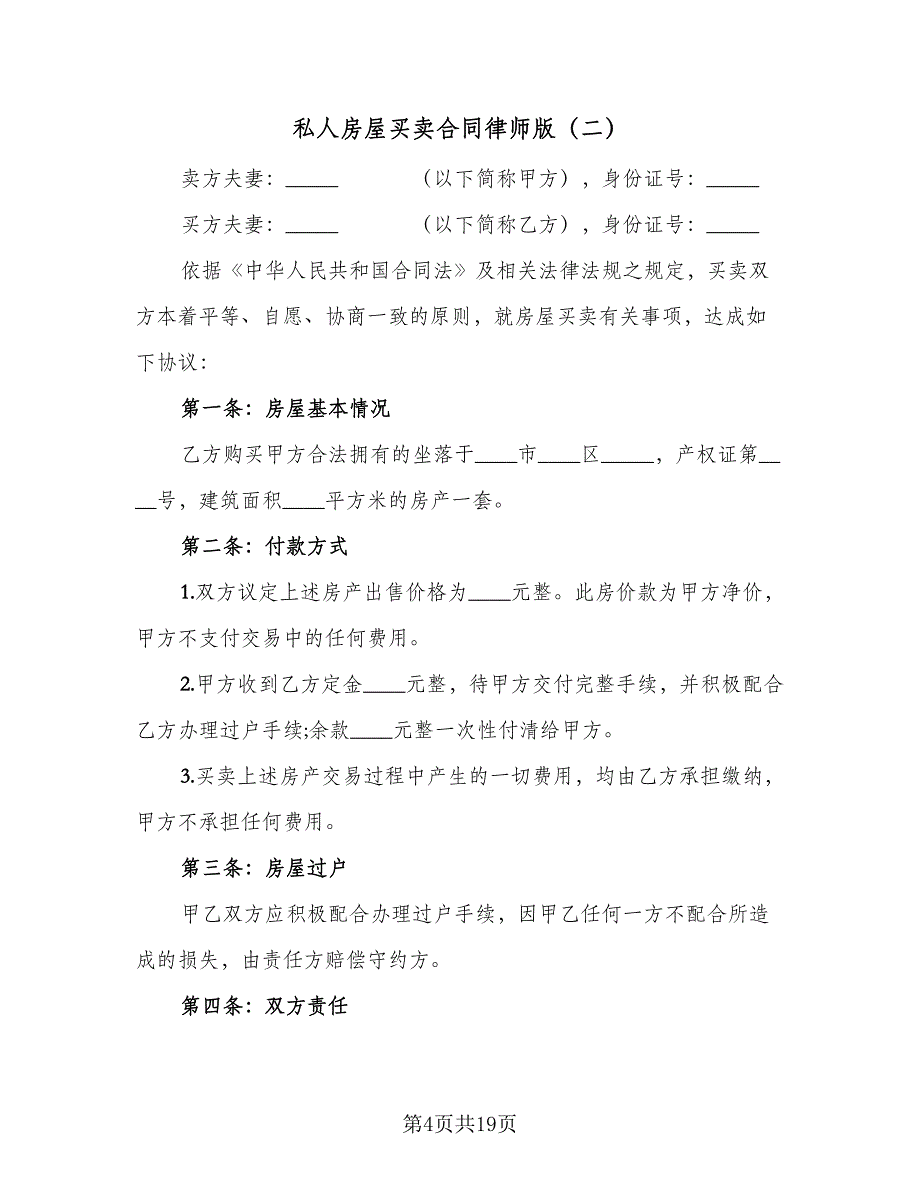 私人房屋买卖合同律师版（二）
卖方夫妻：_____ （以下简称甲方），身份证号：_____
买方夫妻：_____ （以下简称乙方），身份证号：_____
依据《中华人民共和国合同法》及相关法律法规之规定，买卖双
方本着平等、自愿、协商一致的原则，就房屋买卖有关事项，达成如
下协议：
第一条：房屋基本情况
乙方购买甲方合法拥有的坐落于____市____区_____，产权证第__
__号，建筑面积____平方米的房产一套。
第二条：付款方式
1.双方议定上述房产出售价格为____元整。此房价款为甲方净价，
甲方不支付交易中的任何费用。
2.甲方收到乙方定金____元整，待甲方交付完整手续，并积极配合
乙方办理过户手续;余款____元整一次性付清给甲方。
3.买卖上述房产交易过程中产生的一切费用，均由乙方承担缴纳，
甲方不承担任何费用。
第三条：房屋过户
甲乙双方应积极配合办理过户手续，因甲乙任何一方不配合所造
成的损失，由责任方赔偿守约方。
第四条：双方责任
第4页共19页